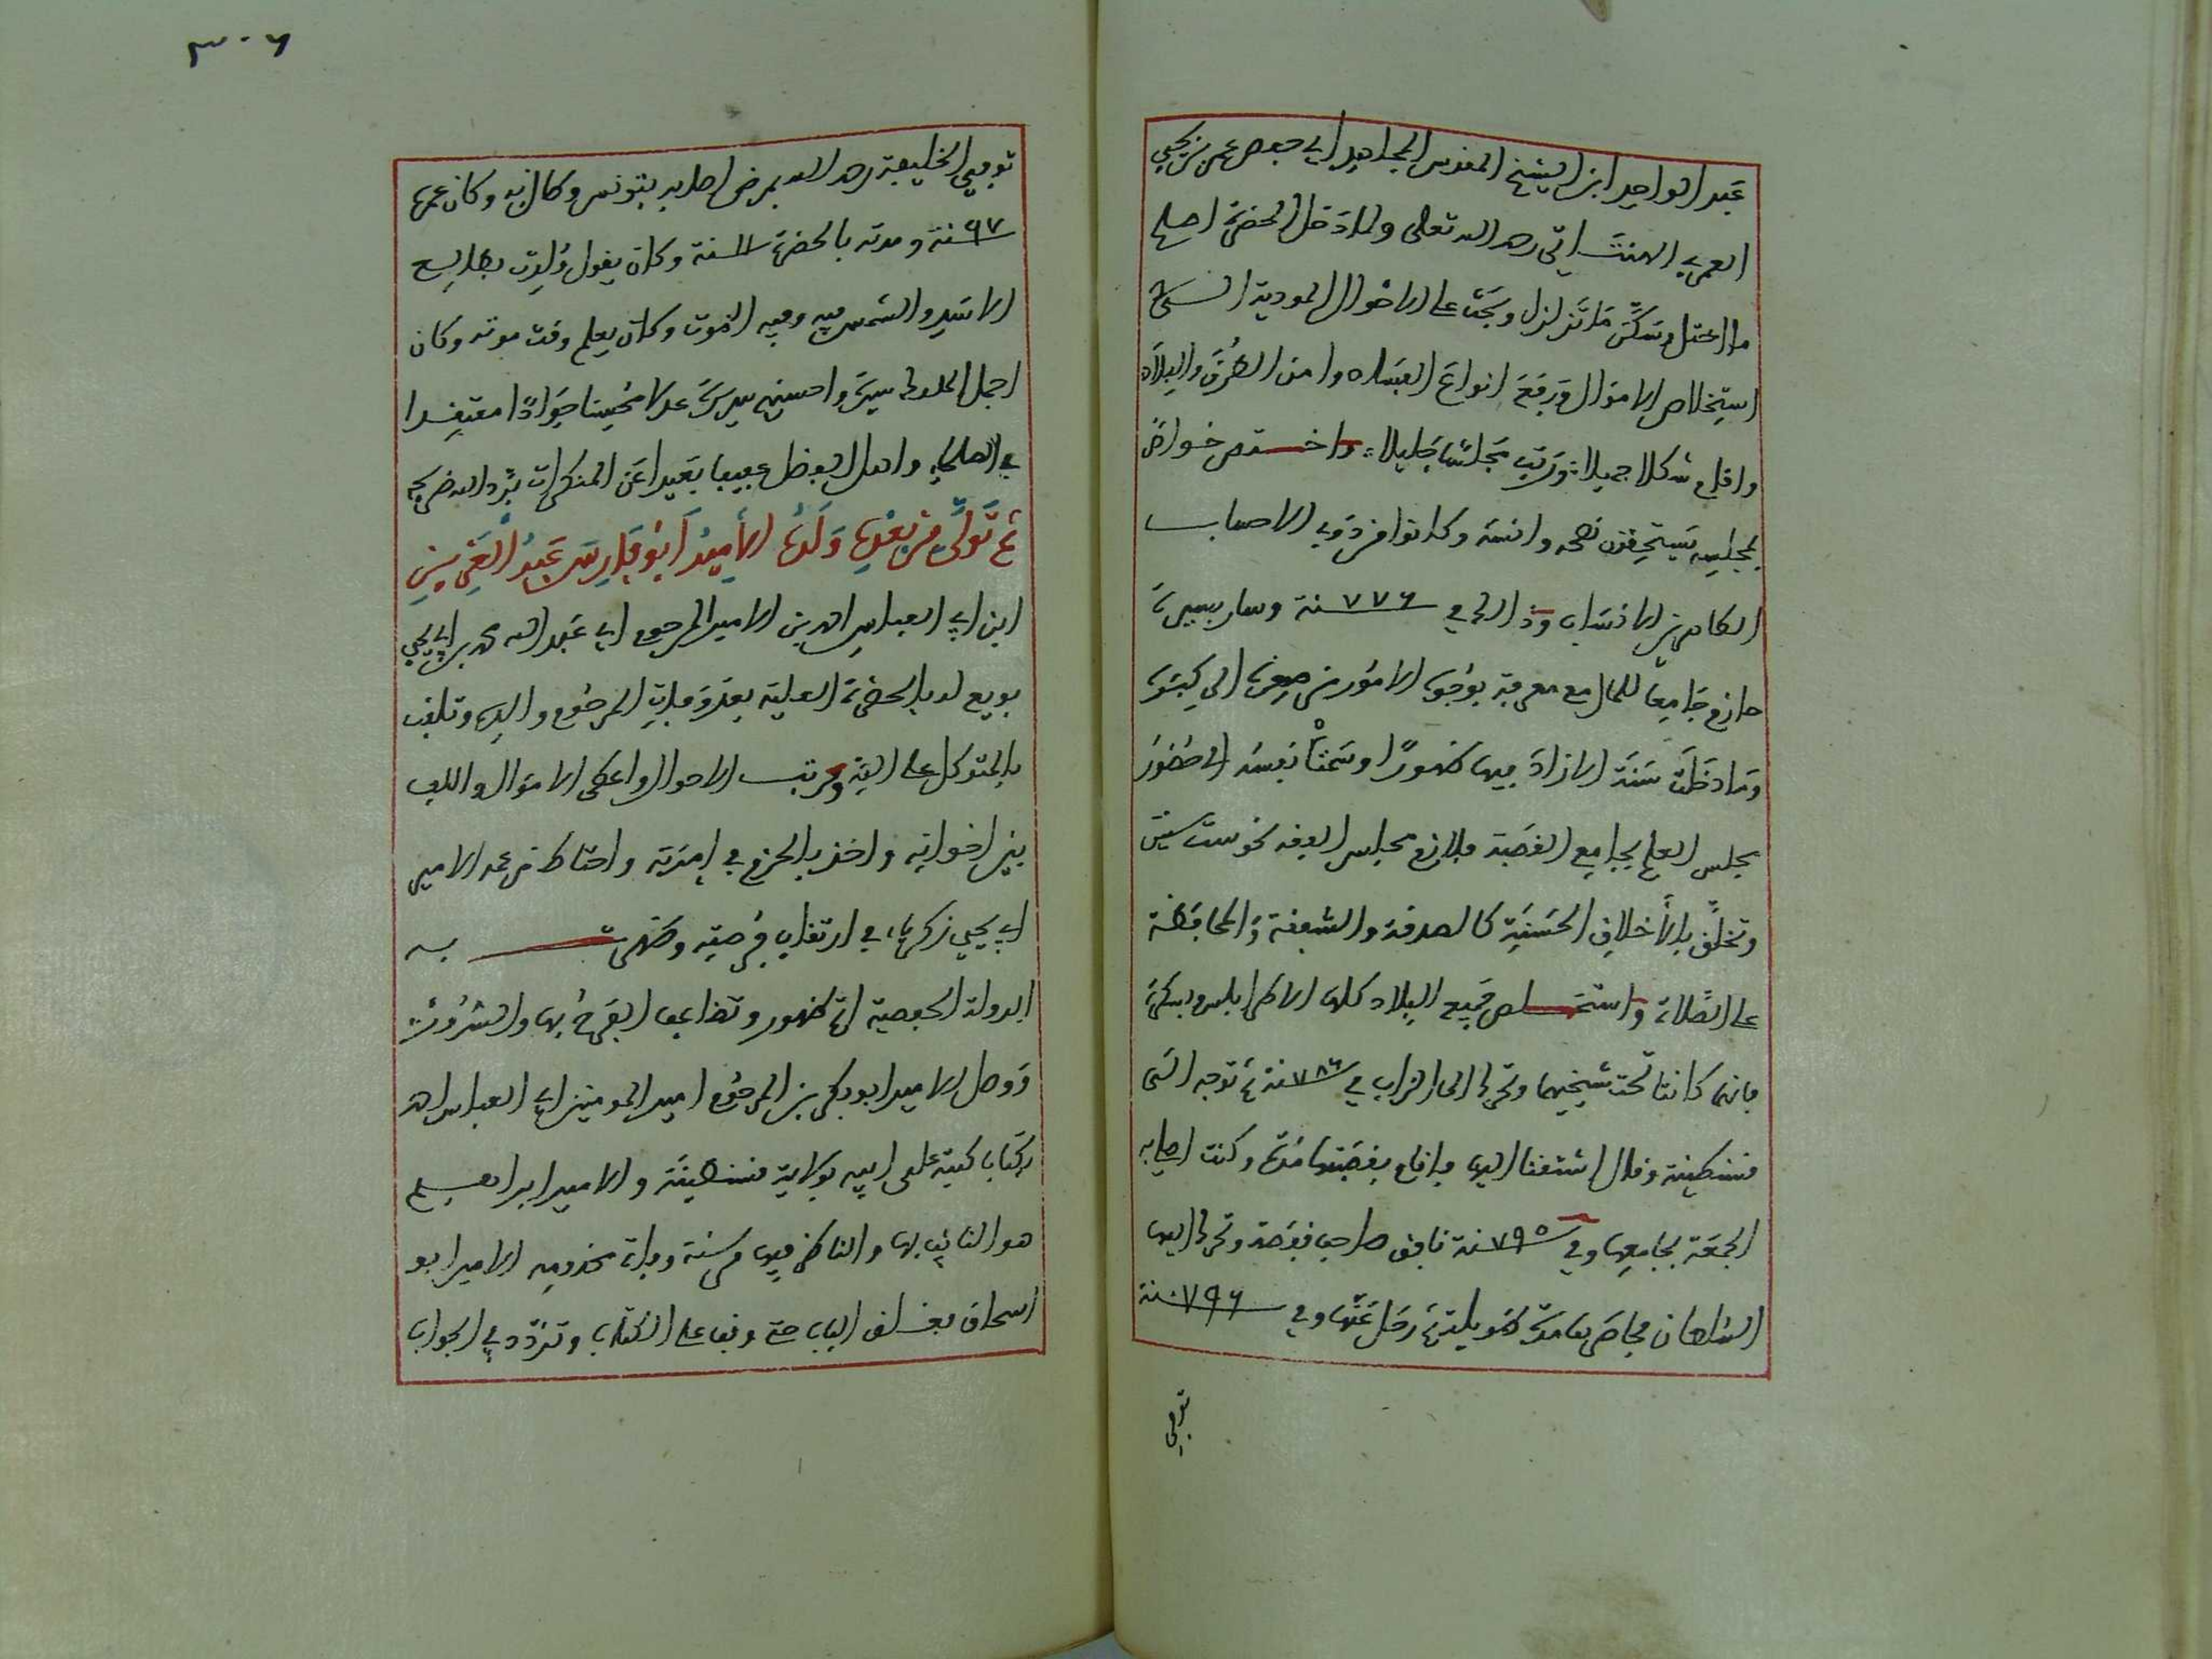 عبد الواحد ابن الشيخ المقدس المجاهد ابي حفص عمر بن يحيى
العمري الهنتاتي رحمه الله تعلى ولما دخل الحضرة اصلح
ما اختل وسكن ما تزلزل وبحث على الاخوال المودية الى
استخلاص الاموال ورفع انواع الفساد وامن الطرق والبلاد
واقام شكلا جميلا ورتب مجلسا جليلا واختص خواص
لمجلسه يستحقون نصحه وانسه وكانوا من ذوي الاحساب
الطاهرين الانساب وذالك في ٧٧٦ سنة وسار بسيرة
حازم جامعا للمال مع معرفة بوجوه الامور من صغره الى كبره
وما دخلت سنة الا زاد فيها ظهورا وسمت نفسه الى حضور
مجلس العلم بجامع القصبة فلازم مجلس الفقه نحو ست سنين
وتخلق بالاخلاق الحسنة كالصدقة والشفقة والمحافظة
على الصلاة واستخلص جميع البلاد كلها الا طرابلس وبسكرة
فانهما كانتا تحت شيخيهما وتحرك الى الزاب في ٧٨٦ سنة ثم توجه الى
قسنطينة وقال اشتقنا اليها فاقام بقصبتها مدة وكنت اصلي به
الجمعة بجامعها وفي ٧٩٥ سنة نافق صاحب قفصة وتحرك اليها
السلطان فحاصرها مدة طويلة ثم رحل عنها وفي ٧٩٦ سنة
توفي
٣٠٦
توفي الخليفة رحمه الله بمرض اصابه بتونس وطال به وكان عمره
٦٧ سنة ومدته بالحضرة سنة وكان يقول ولدت بطالع
الاسد والشمس فيه وفيه الموت وكان يعلم وقت موته وكان
اجمل الملوك سيرة واحسنهم سريرة عدلا محسنا جوادا معتقدا
في الصلحاء واهل الفضل عفيفا بعيدا عن المنكرات برد الله ضريحه
ثم تولى من بعده ولده الامير ابو فارس عبد العزيز
ابن ابي العباس احمد بن الامير المرحوم ابي عبد الله محمد بن ابي يحيى
بويع له بالحضرة العلية بعد وفاة المرحوم والده وتلقب
بالمتوكل على الله ورتب الاحوال واعطى الاموال والف
بين اخوانه واخذ بالحزم في امرته واحتاط من عمه الامير
ابي يحيى زكرياء في ارتقاب فرصته وظهرت به
الدولة الحفصية اتم ظهور وتضاعف الفرح بها والسرور
ووصل الامير ابو بكر بن المرحوم امير المومنين ابي العباس احمد
بكتاب كتبه على ابيه بولاية قسنطينة والامير ابراهيم
هو النائب بها والناظر فيها من سنة وفاة مخدومه الامير ابو
اسحاق فغلق الباب حتى وقف على الكتاب وتردد في الجواب